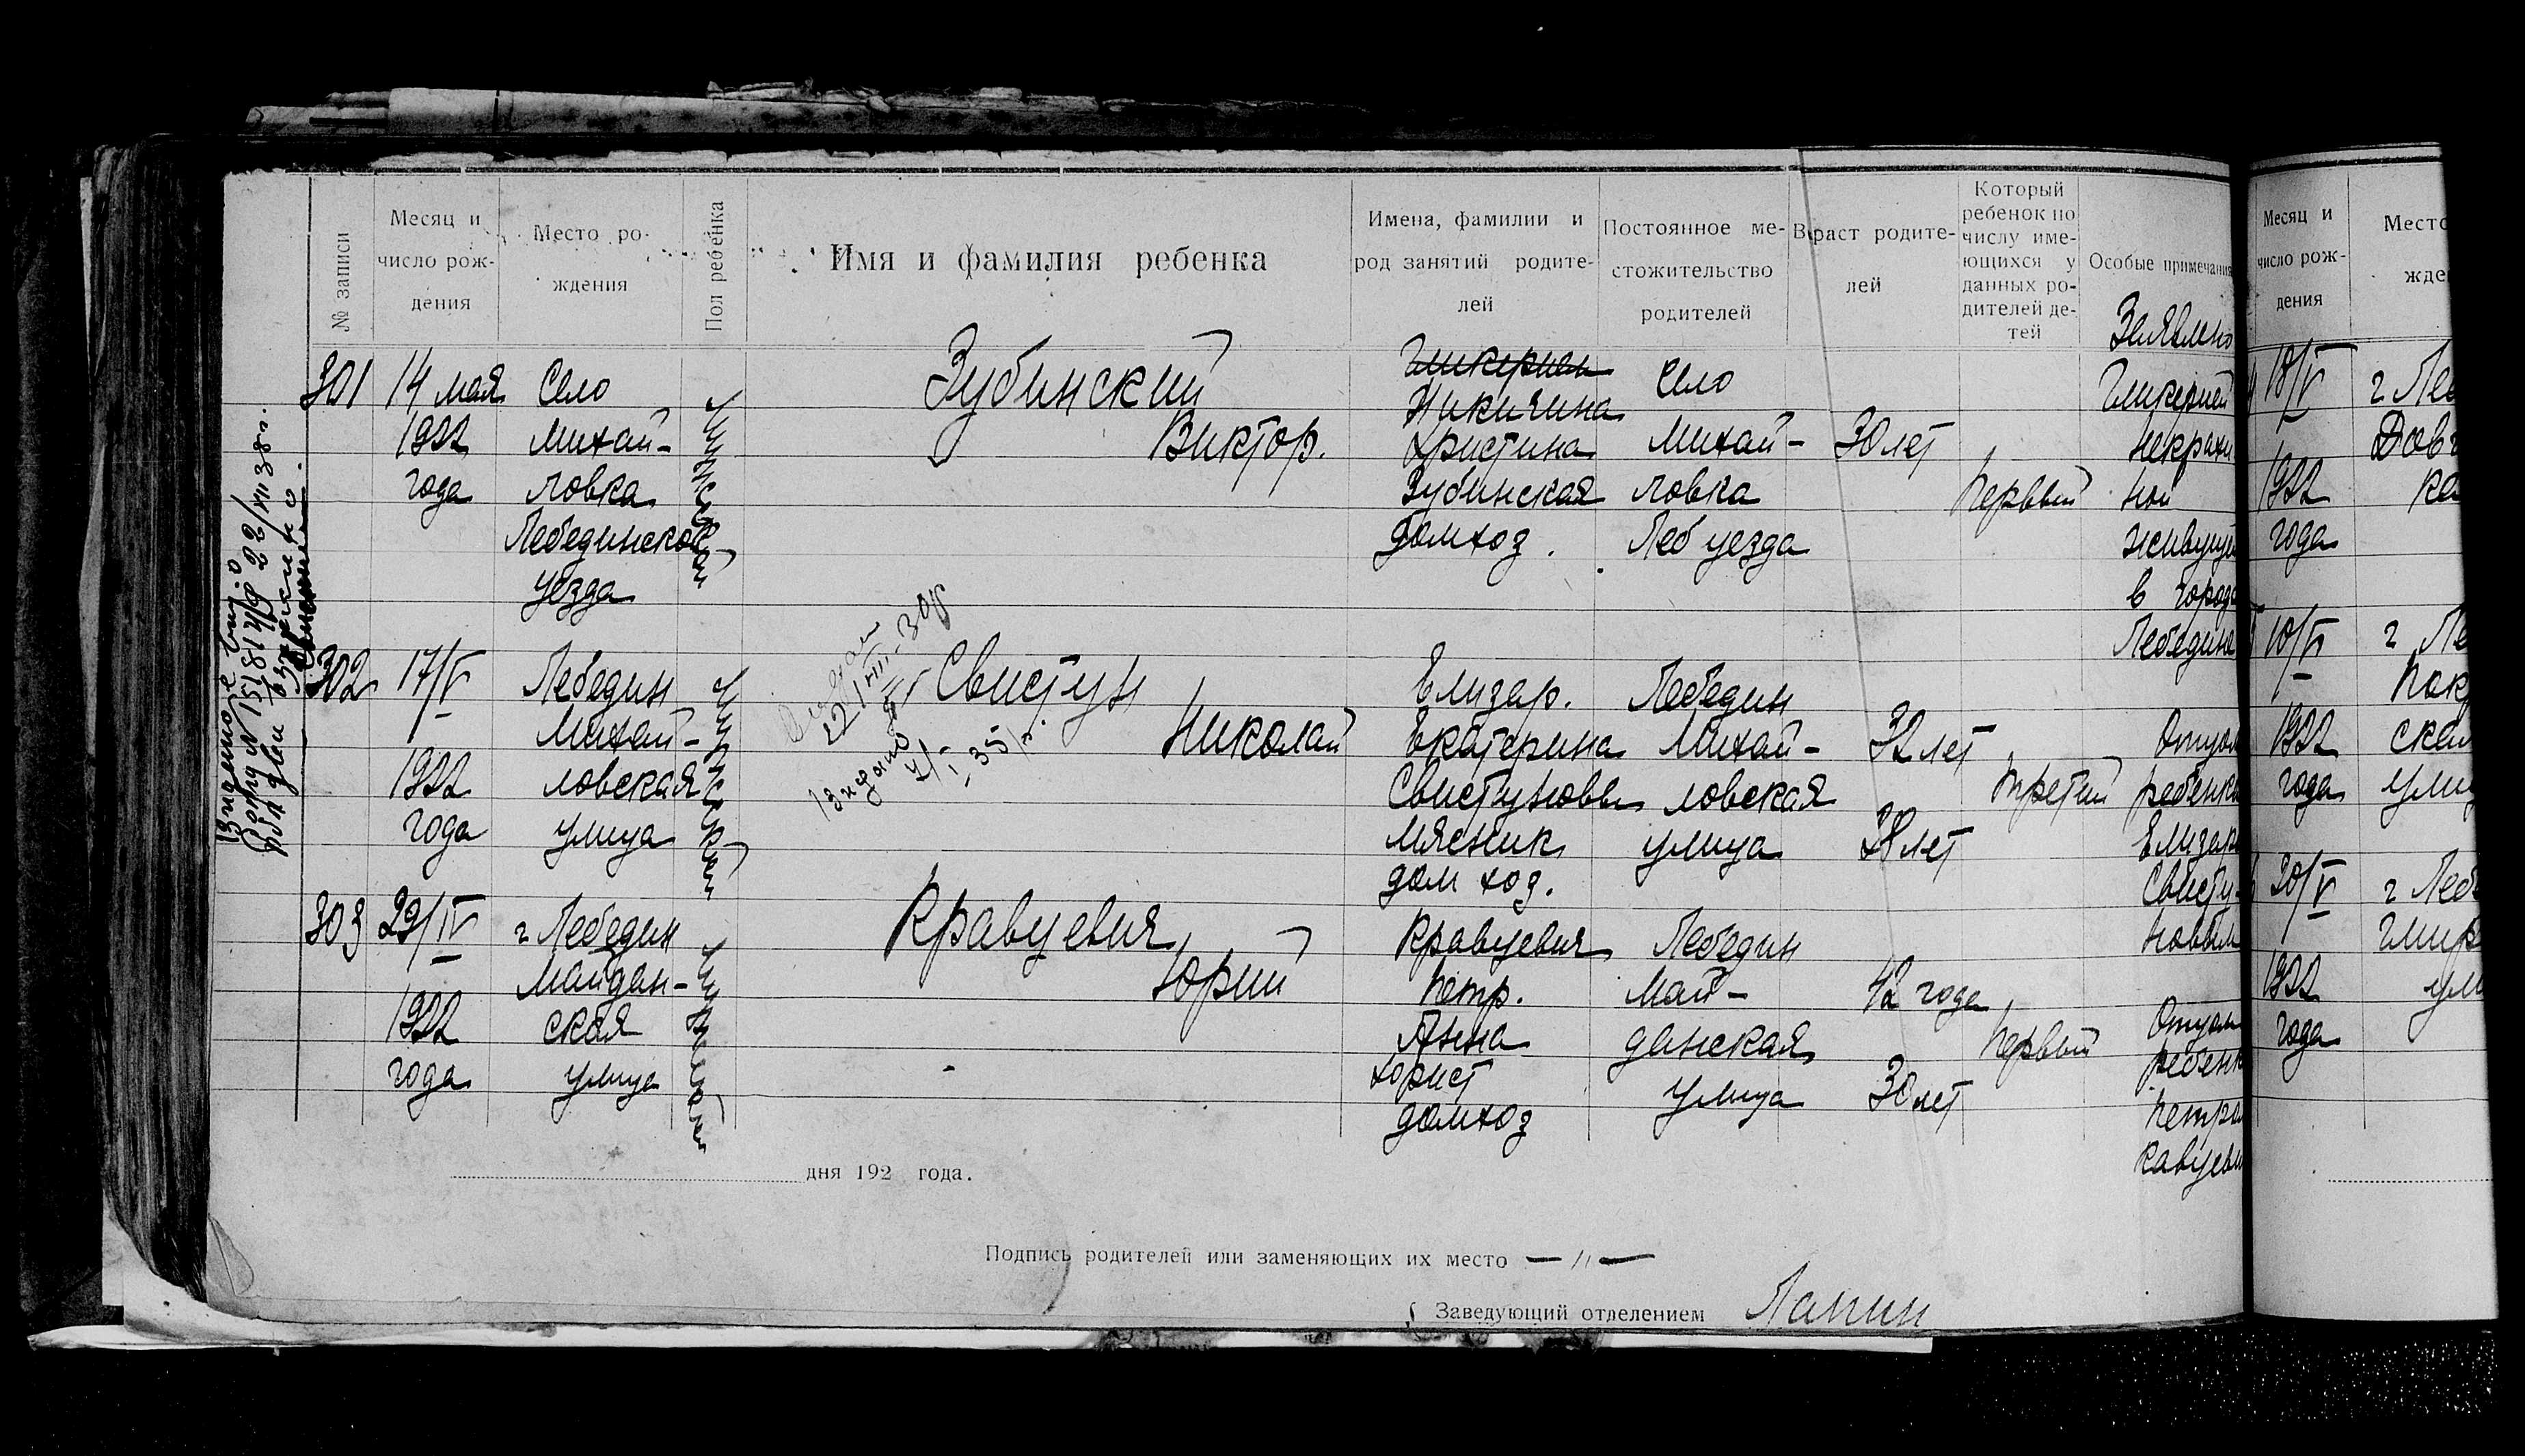 № записи
Месяц и
число рож-
дения
Место ро-
ждения
Пол ребенка
Имя и фамилия ребенка
Имена, фамилии и
род занятий родите-
лей
Постоянное ме-
стожительство
родителей
Возраст родите-
лей
Который
ребенок по
числу име-
ющихся у
данных ро-
дителей де-
тей
Особые примечания
301
14 мая
1922
года
Село
Михай-
ловка
Лебединского
уезда
Мужской
Зубинский
Виктор.
Гликерия
Никитина
Христина
Зубинская
домхоз.
Село
Михай-
ловка
Леб уезда
30 лет
Первый
Заявлено
Гликерией
Некраси
ной
живущей
в городе
Лебедине
302
17/V
1922
года
Лебедин
Михай-
ловская
улица
Мужской
22/VIII-30р
Свистун
Николай
Елизар.
Екатерина
Свистуновы
мясник
дом хоз.
Лебедин
Михай-
ловская
улица
32 лет
28 лет
третий
Отцом
ребенка
Елизар
Свисту-
новым
303
29/IV
1922
года
г Лебедин
Майдан-
ская
улица
Мужской
Кравцевич
Юрий
Кравцевич
Петр.
Анна
хорист
домхоз
Лебедин
Май-
данская
улица
42 года
30 лет
Первый
Отцом
ребенк
Петром
дня 192 года.
Подпись родителей или заменяющих их место — // —
Заведующий отделением
Месяц и
число рож-
дения
Место
жде
18/V
1922
года
г Леб
10/V
1922
года
г Ле
Пок
ская
улиц
20/V
1922
года
г Леб
ули